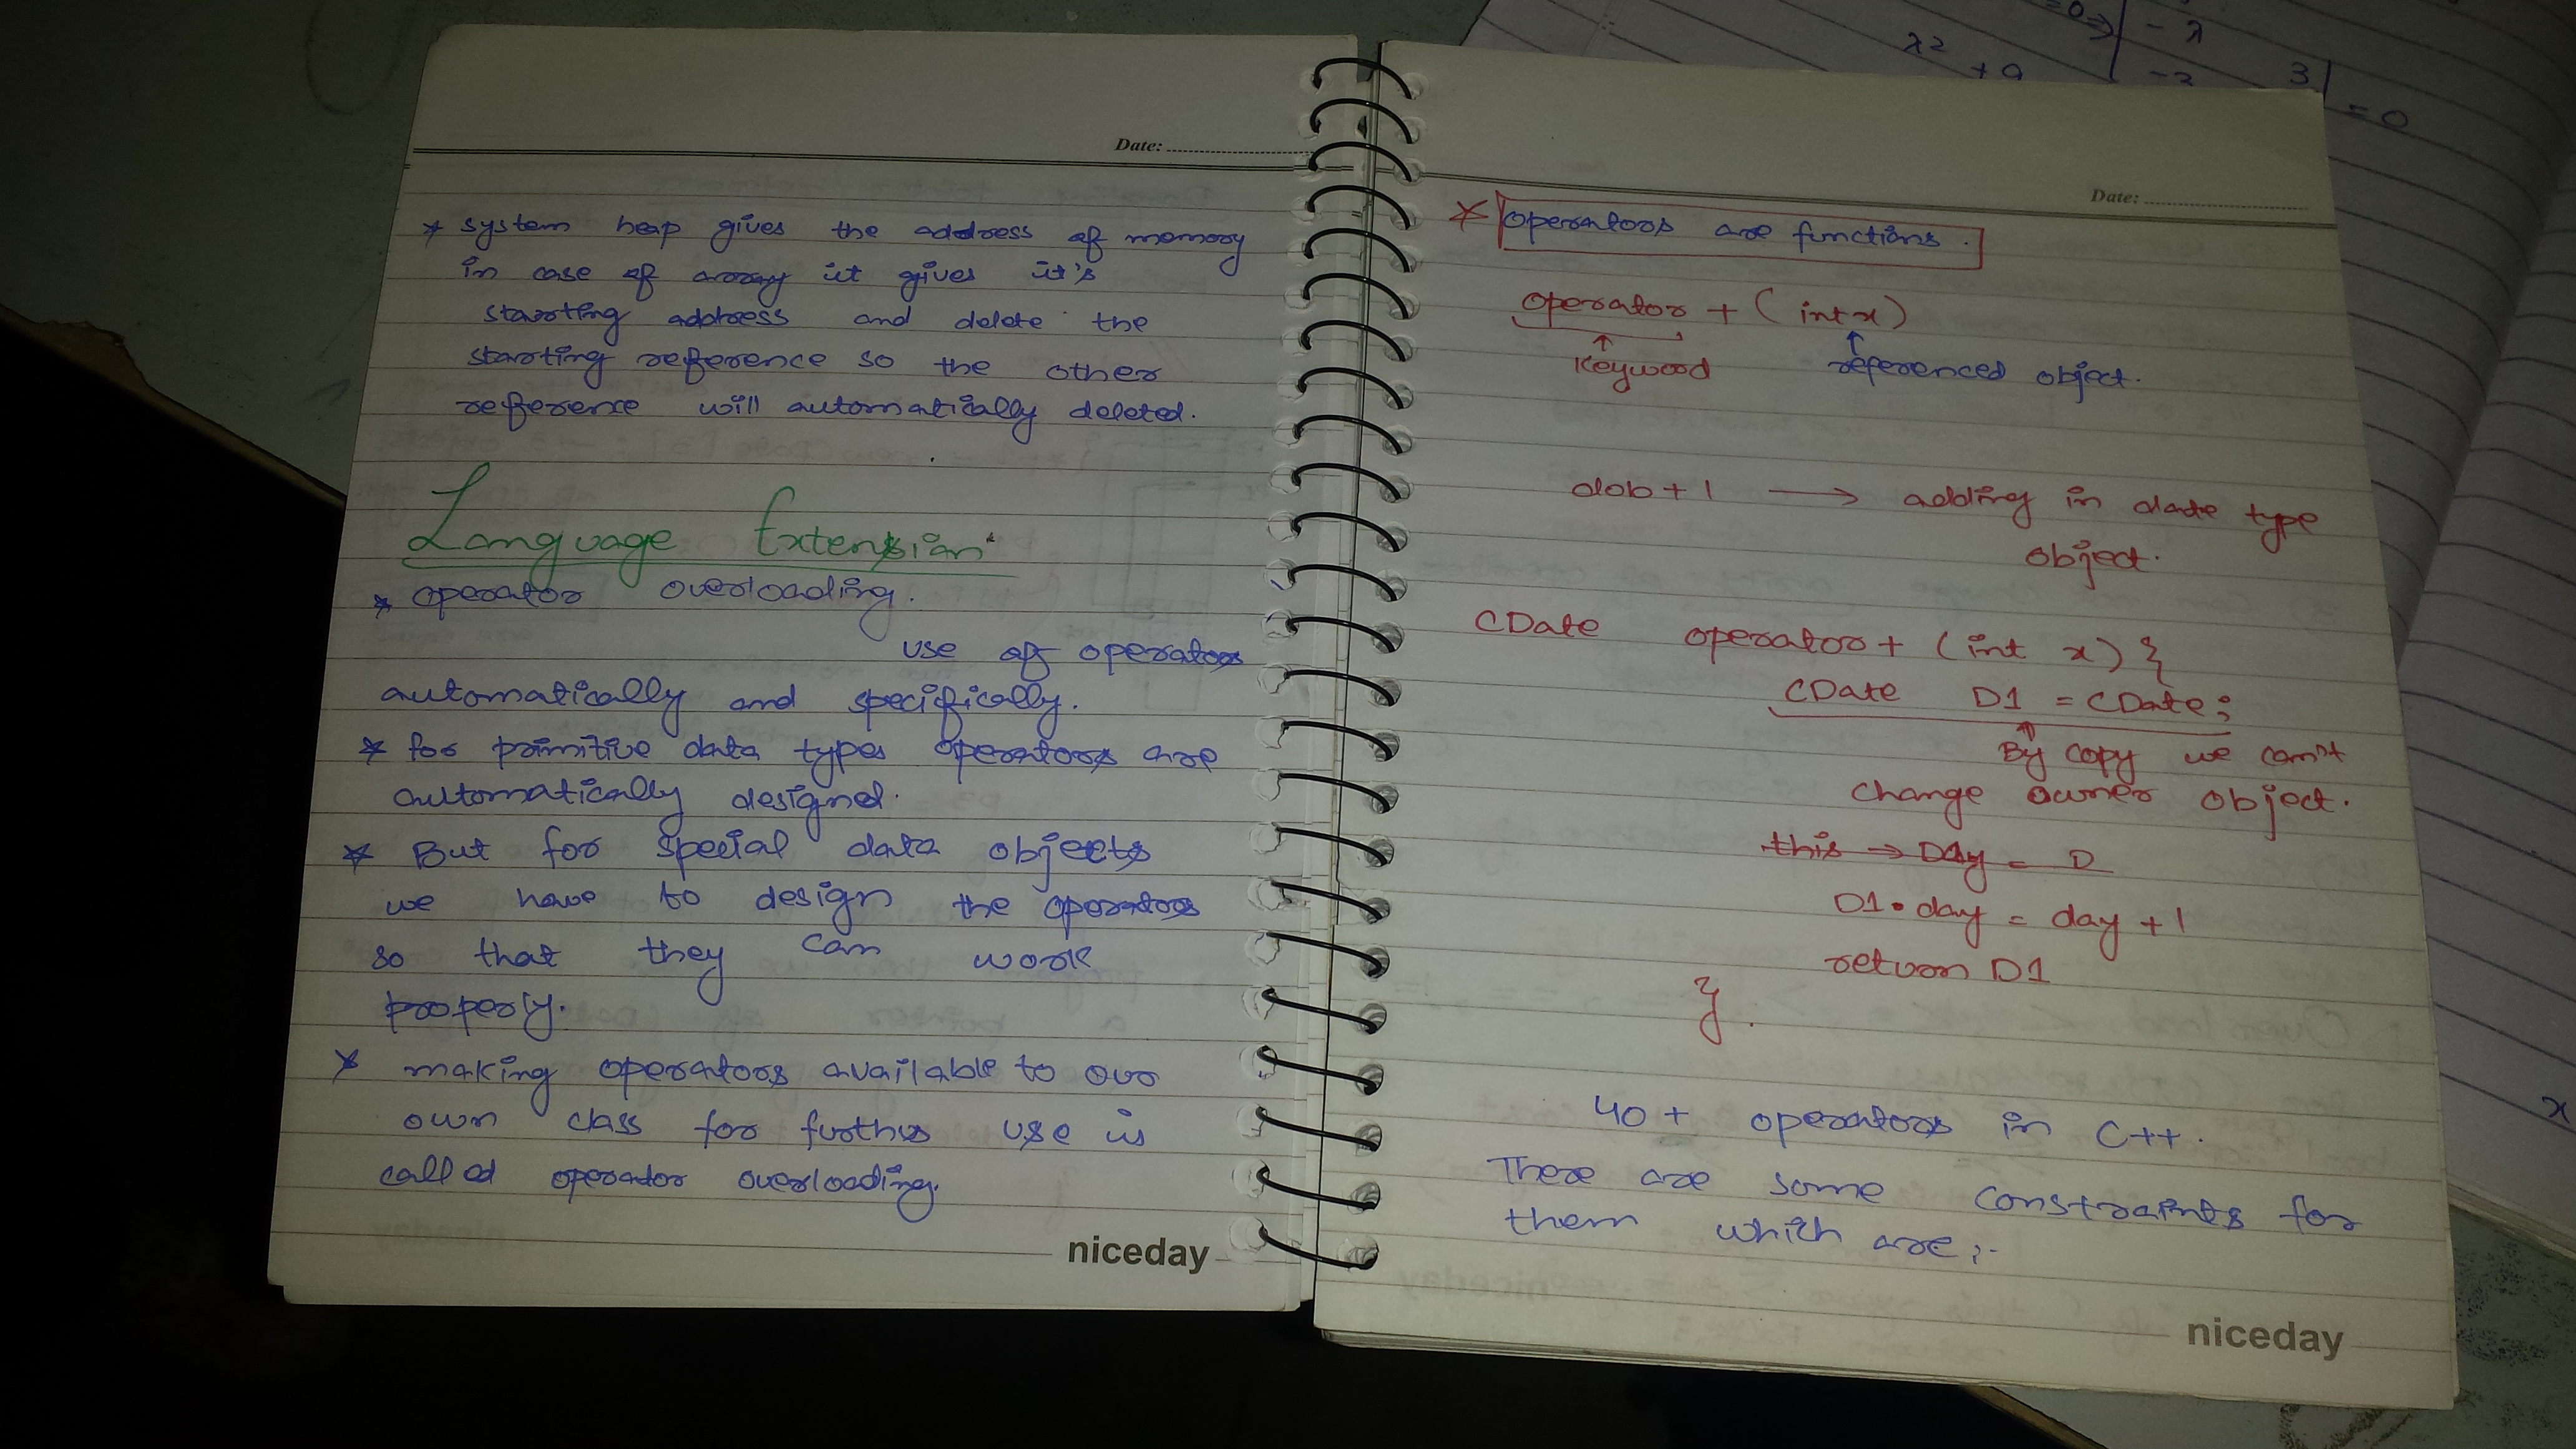 Date:
* system heap gives the address of memory
in case of array it gives it's
starting address and delete the
starting reference so the other
reference will automatically deleted.
Language Extension
* operator overloading.
use of operators
automatically and specifically.
* for primitive data types operators are
automatically designed.
* But for special data objects
we have to design the operators
so that they can work
properly.
* making operators available to our
own class for further use is
called operator overloading.
niceday
Date:
* operators are functions.
operator + (int x)
↑ ↑
Keyword referenced object.
dob + 1 → adding in date type
object.
CDate operator+ (int x) {
CDate D1 = CDate;
↑
By copy we can't
change owner object.
this → Day = D
D1.day = day + 1
return D1
}.
40 + operators in C++.
There are some constraints for
them which are;-
niceday
=0 ⇒ | -λ
λ2 + 9
-3 3 | = 0
x